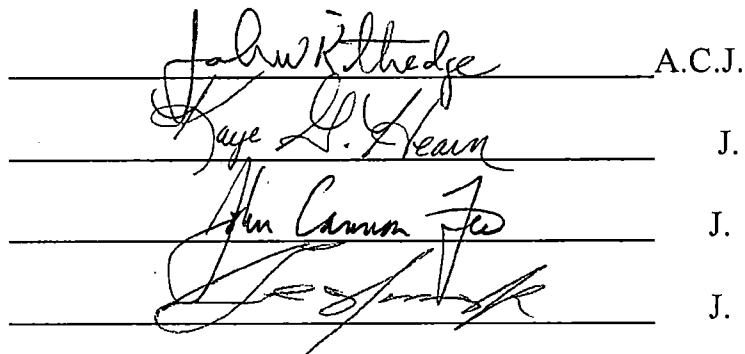 John W Kittredge A.C.J.
Kaye G. Hearn J.
John Cannon Few J.
J.